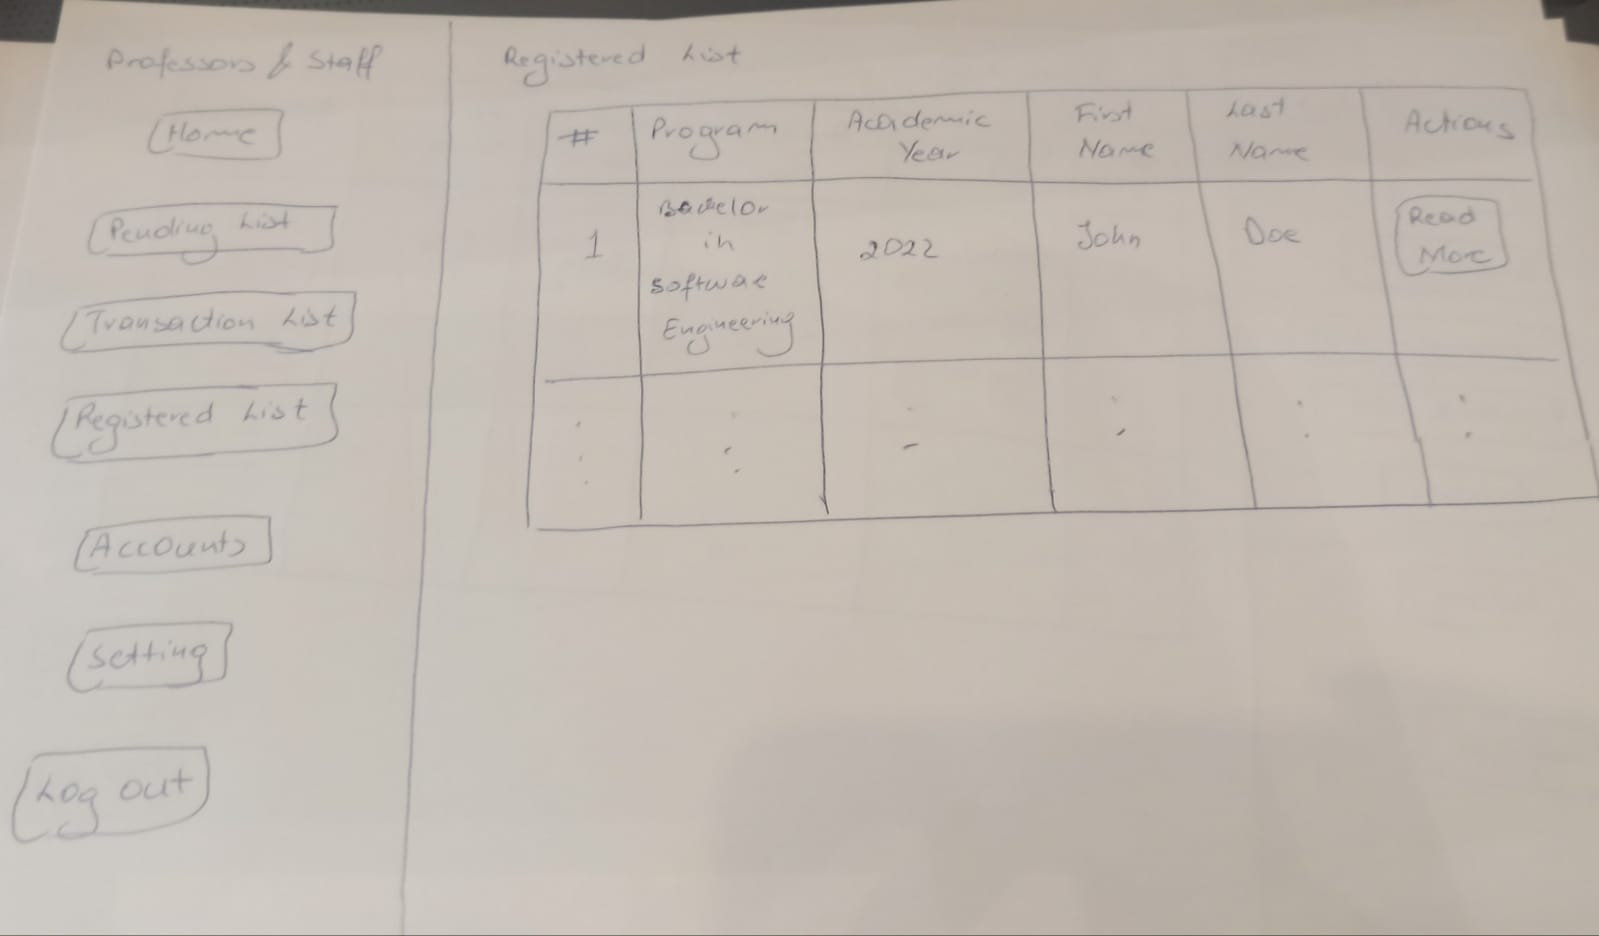 Professors & Staff
Home
Pending List
Transaction List
Registered List
Accounts
Setting
Log out
Registered List
# Program Academic Year First Name Last Name Actions
1 Bachelor in Software Engineering 2022 John Doe Read More